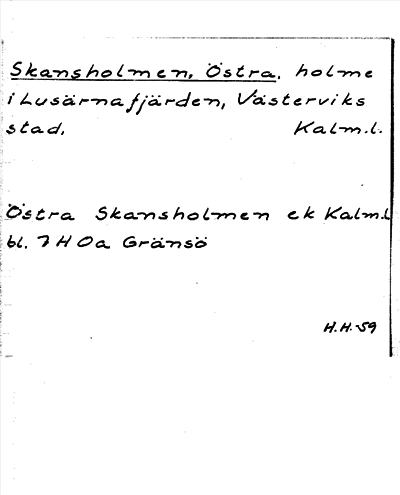 Skansholmen, Östra, holme
i Lusärnafjärden, Västerviks
stad, Kalm.l.
Östra Skansholmen ek Kalm.l
bl. 7 H Oa Gränsö
H.H.-59